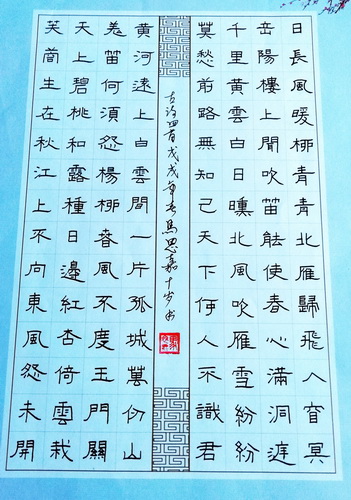 日長風暖柳青青北雁歸飛入窅冥
岳陽樓上聞吹笛能使春心滿洞庭
千里黃雲白日曛北風吹雁雪紛紛
莫愁前路無知己天下何人不識君
古诗四首戊戌年春馬思嘉十岁书
黃河遠上白雲間一片孤城萬仞山
羌笛何須怨楊柳春風不度玉門關
天上碧桃和露種日邊紅杏倚雲栽
芙蓉生在秋江上不向東風怨未開